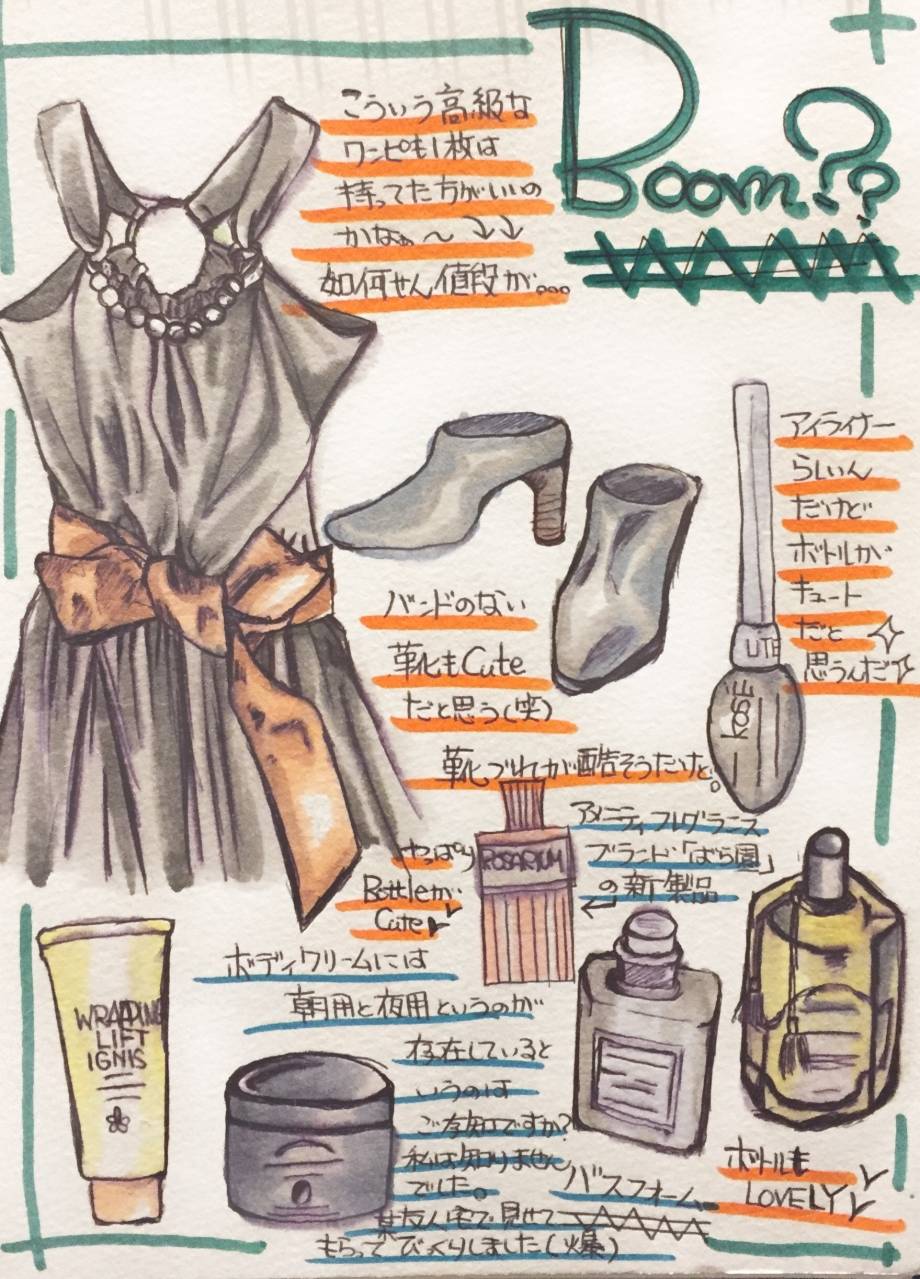 Boom??
こういう高級な
ワンピも1枚は
持ってた方がいいの
かなぁ〜↓↓
如何せん値段が。。。
アイライナー
らしいん
だけど
ボトルが
キュート
だと
思うんだ
UTE
ROSE
バンドのない
靴もCute
だと思う(笑)
靴づれが酷そうだけど。
アメニティフレグランス
ブランド「ばら園」
の新製品
ROSARIUM
やっぱり
Bottleが
Cute
ボディクリームには
朝用と夜用というのが
存在していると
いうのは
ご存知ですか?
私は知りません
でした。
某友人宅で見せて
もらってびっくりしました(爆)
WRAPPING
LIFT
IGNIS
バスフォーム
ボトルも
LOVELY